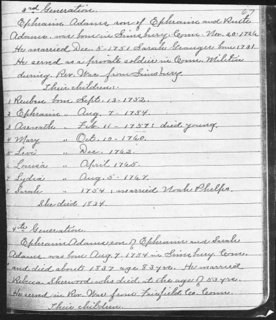 67
3rd Generation.
Ephraim Adams, son of Ephraim and Ruth
Adams was born in Simsbury Conn. Nov. 20-1726
He married Dec. 5-1751 Sarah Granger born 1731
He served as a private soldier in Conn. Militia
during Rev. War from Simsbury
Their children.
1 Reubin born Sept. 13-1752.
2 Ephraim " Aug. 7-1754.
3 " Feb. 11-1757; died young.
4 Mary " Oct. 10-1760.
5 Levi " Dec. 1762
6 " April 1765.
7 Lydia " Aug. 5-1767.
8 Sarah " married Noah Phelps.
She died 1834.
4th Generation
Ephraim Adams son of Ephraim and Sarah
Adams was born Aug. 7-1754 in Simsbury Conn.
and died about 1837 age 83 yrs. He married
Rebecca Sherwood who died at the age of
He served in Rev. War from Fairfield Co. Conn.
Their children